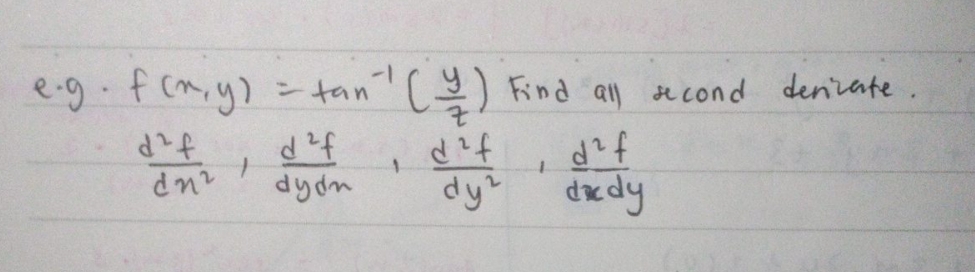 e.g. f(x,y) = tan⁻¹(y/z) Find all second derivate.
d²f/dx² , d²f/dydx , d²f/dy² , d²f/dxdy